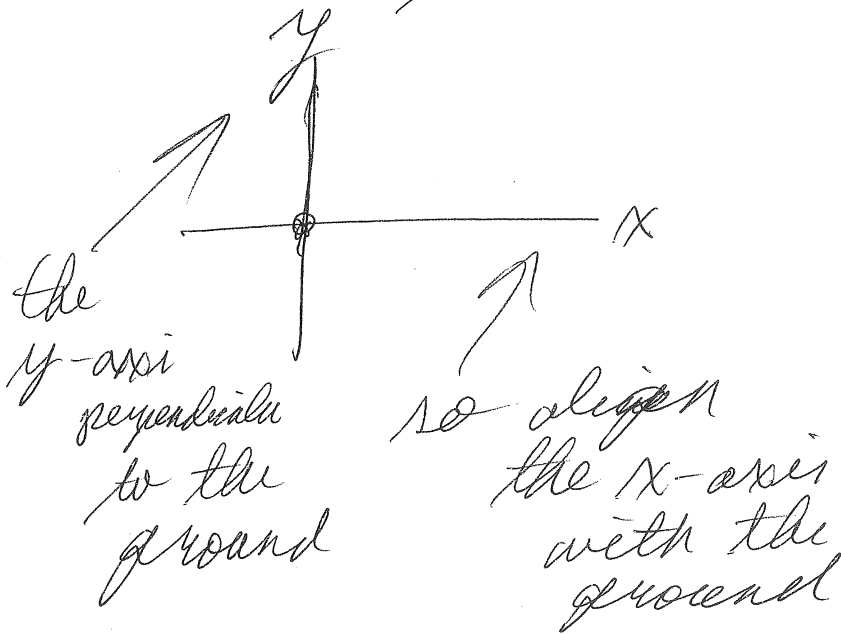 y
x
the
y-axi
perpendicula
to the
ground
so align
the x-axis
with the
ground